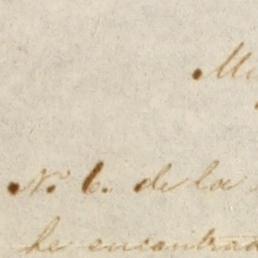 Mu
Nº 6. de la
he encontrad